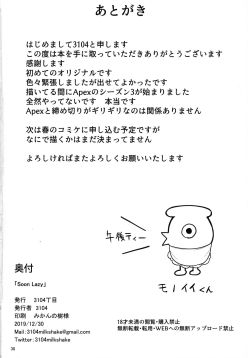 あとがき
はじめまして3104と申します
この度は本を手に取っていただきありがとうございます
感謝します
初めてのオリジナルです
色々緊張しましたが出せてよかったです
描いてる間にApexのシーズン3が始まりました
全然やってないです 本当です
Apexと締め切りがギリギリなのは関係ありません
次は春のコミケに申し込む予定ですが
なにで描くかはまだ決まってません
よろしければまたよろしくお願いいたします
午後ティー
モノイイくん
奥付
「Soon Lazy」
発行 3104丁目
発行者 3104
印刷 みかんの樹様
2019/12/30
Mail:3104milkshake@gmail.com
Twitter:3104milkshake
18才未満の閲覧・購入禁止
無断転載・転用・WEBへの無断アップロード禁止
30